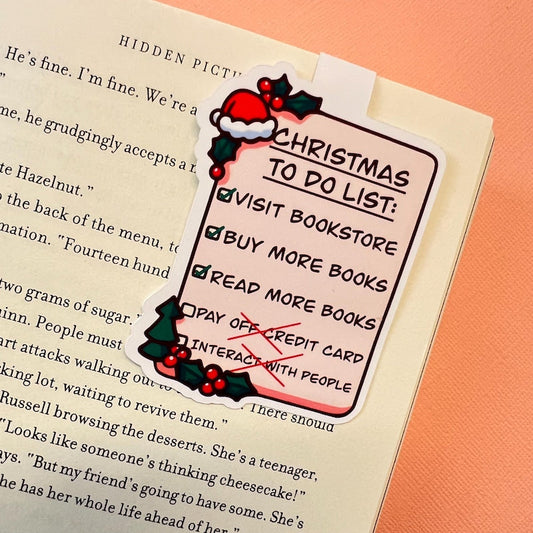 HIDDEN PICTU
He's fine. I'm fine. We're a
"
me, he grudgingly accepts a
te Hazelnut."
o the back of the menu, to
mation. "Fourteen hund
two grams of sugar."
inn. People must
art attacks walking out to
king lot, waiting to revive them." There should
Russell browsing the desserts. She's a teenager,
"Looks like someone's thinking cheesecake!"
ays. "But my friend's going to have some. She's
he has her whole life ahead of her."
CHRISTMAS
TO DO LIST:
VISIT BOOKSTORE
BUY MORE BOOKS
READ MORE BOOKS
PAY OFF CREDIT CARD
INTERACT WITH PEOPLE